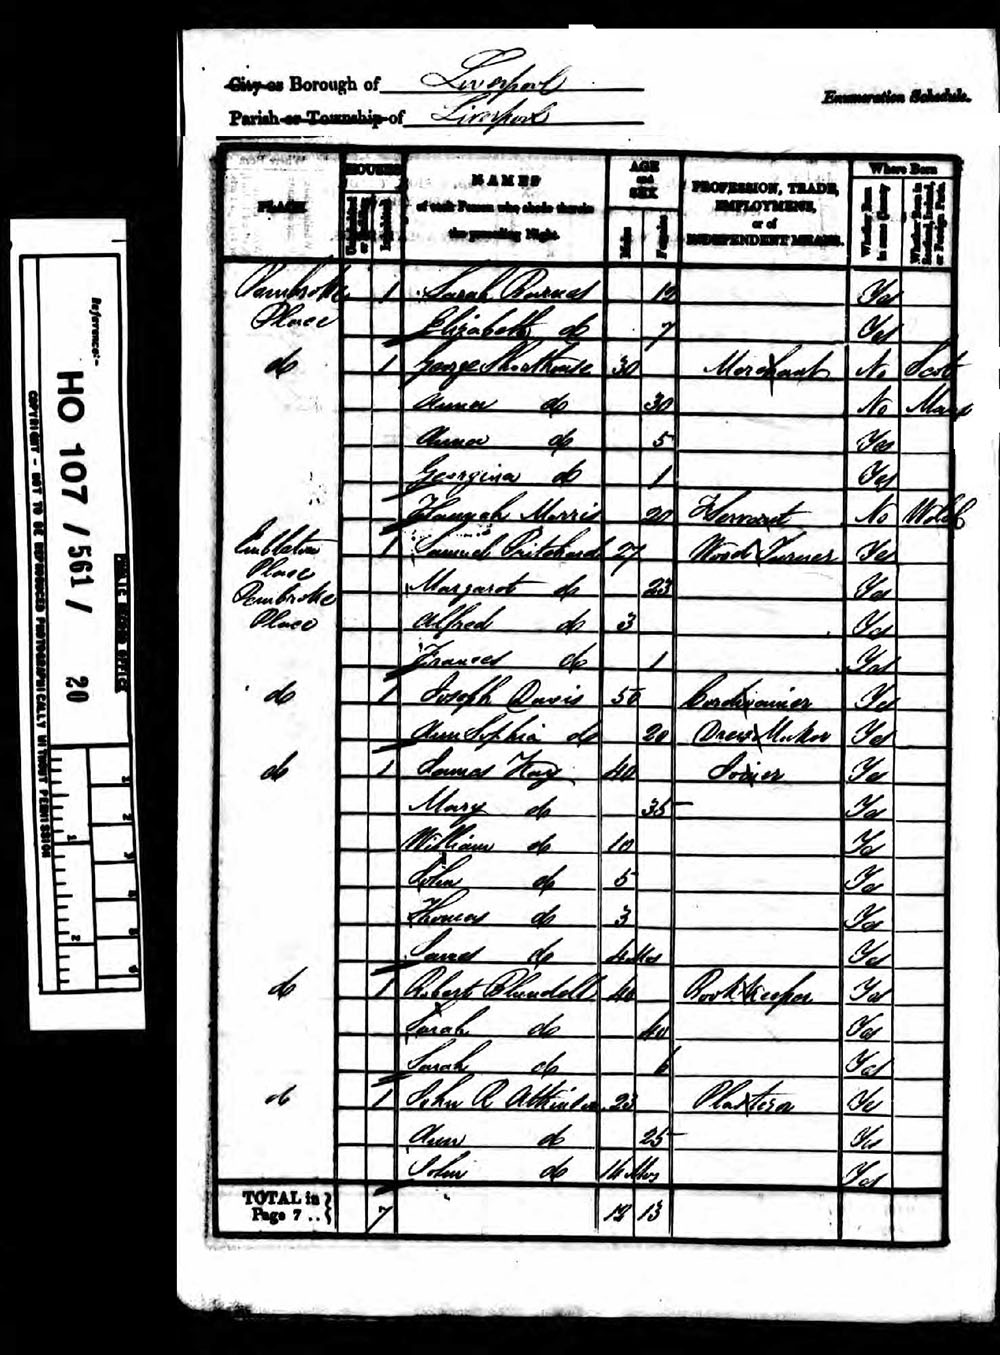 City or Borough of Liverpool
Parish or Township of Liverpool
Enumeration Schedule.
PLACE
HOUSES
Uninhabited or Building
Inhabited
NAMES
of each Person who abode therein
the preceding Night.
AGE and SEX
Males
Females
PROFESSION, TRADE,
EMPLOYMENT,
or of
INDEPENDENT MEANS.
Where Born
Whether Born in same County
Whether Born in Scotland, Ireland, or Foreign Parts
Pembroke 1 Sarah Barnes Yes
Place Elizabeth do 7 Yes
do 1 George 30 Merchant No Scot
Anna do 30 No
Anna do 5 Yes
Georgina do 1 Yes
Hannah Morris 20 F Servant No
Embleton 1 Samuel Pritchard 27 Wood Turner Yes
Place
Pembroke Margaret do 23 Yes
Place Alfred do 3 Yes
Frances do 1 Yes
do 1 Joseph Davis 50 Cordwainer Yes
Ann Sophia do 20 Dress Maker Yes
do 1 James Kay 40 Joiner Yes
Mary do 35 Yes
William do 10 Yes
John do 5 Yes
Thomas do 3 Yes
James do 4 Mos Yes
do 1 Robert Blundell 40 Book Keeper Yes
Sarah do 40 Yes
Sarah do 6 Yes
do 1 John R Atkinson 23 Plasterer Yes
Ann do 25 Yes
John do 14 Mos Yes
TOTAL in
Page 7 .. 7 12 13
Reference:-
HO 107 / 561 / 20
PUBLIC RECORD OFFICE
COPYRIGHT - NOT TO BE REPRODUCED PHOTOGRAPHICALLY WITHOUT PERMISSION
1
2
1
2
3
4
5
6